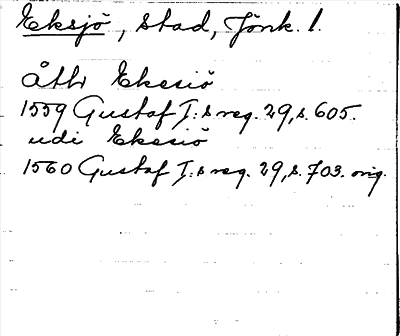 Eksjö, stad, Jönk. l.
åthr Ekesiö
1559 Gustaf I:s reg. 29, s. 605.
udi Ekesiö
1560 Gustaf I:s reg. 29, s. 703. orig.